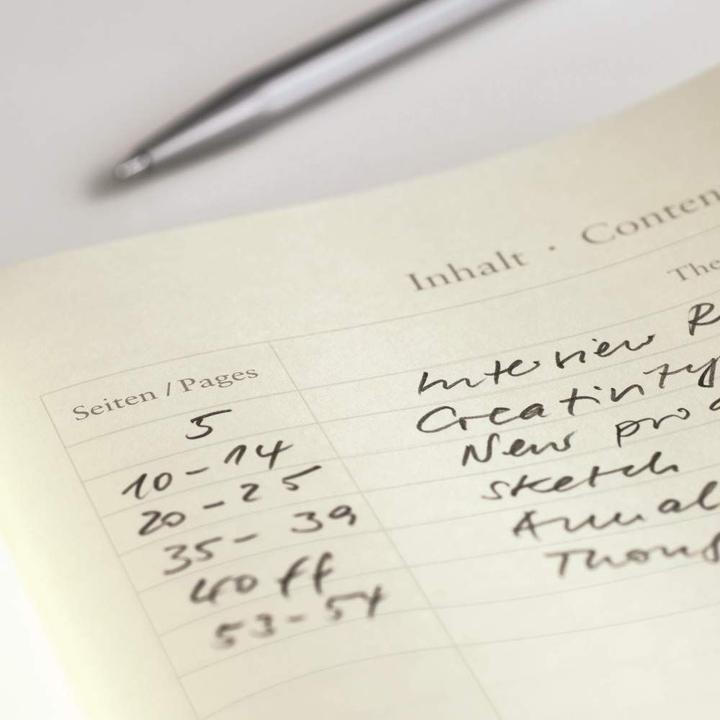 Inhalt · Conten
The
Seiten / Pages
5 Interview R
10 - 14 Creativity
20 - 25 New pro
35 - 39 Sketch
40 ff Annual
53 - 54 Thoug